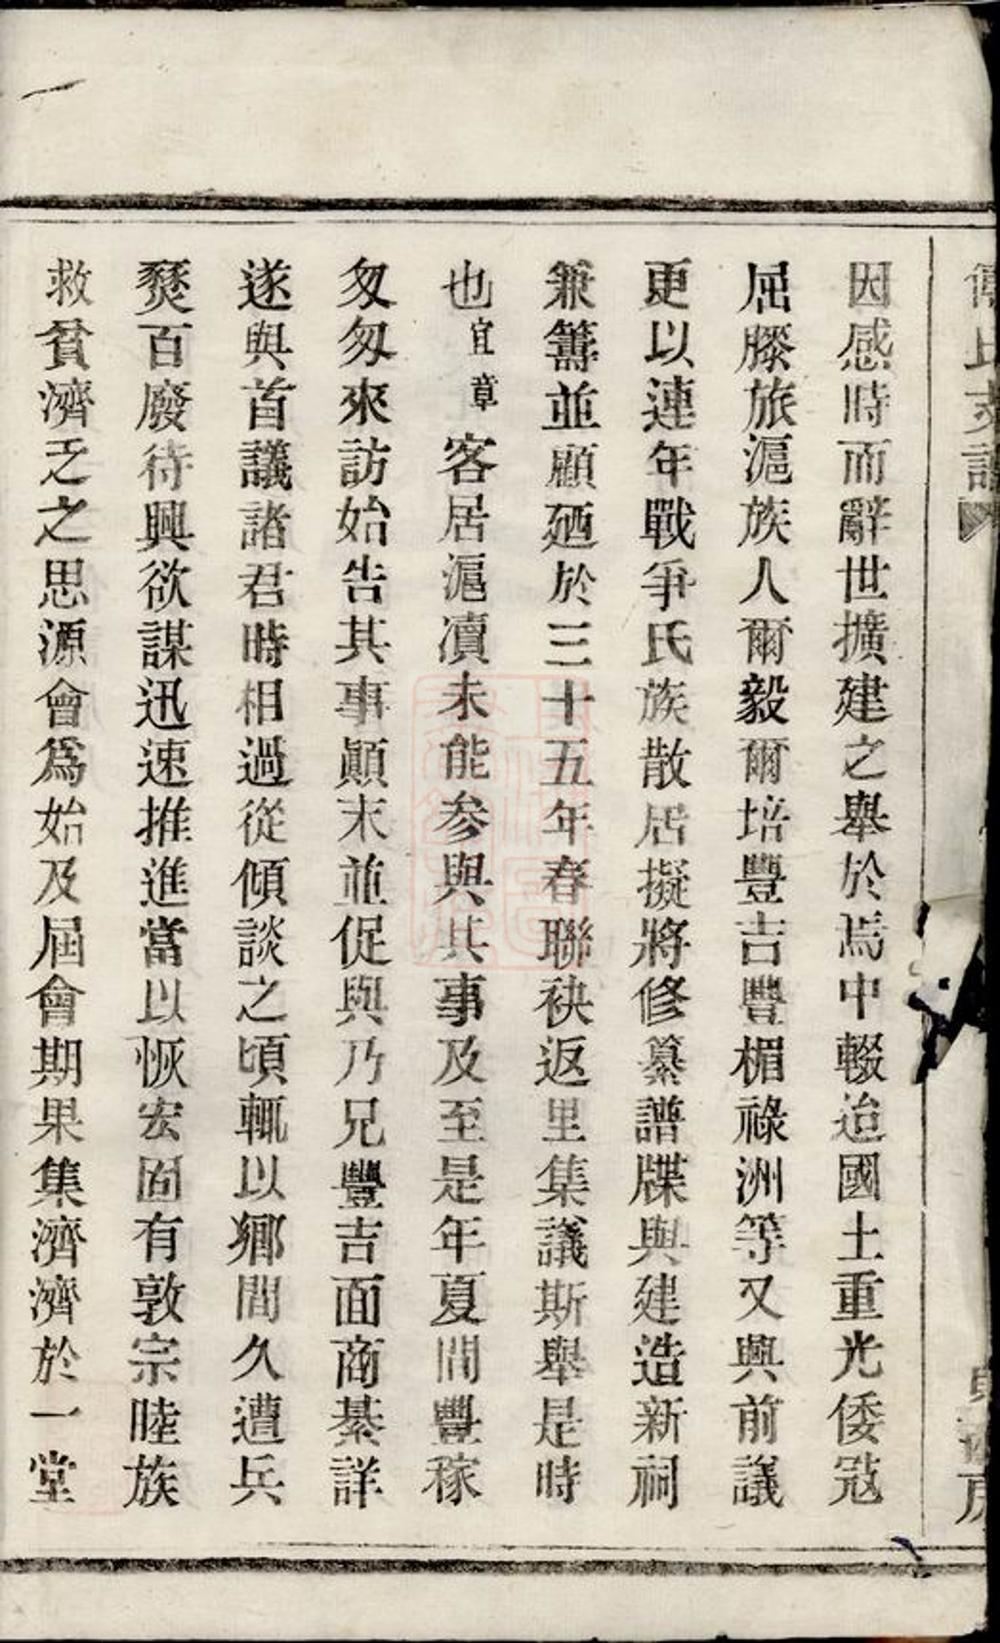 氏支譜
因感時而辭世擴建之舉於焉中輟迨國土重光倭寇
屈膝旅滬族人爾毅爾培豐吉豐楣祿洲等又興前議
更以連年戰爭氏族散居擬將修纂譜牒與建造新祠
兼籌並顧廼於三十五年春聯袂返里集議斯舉是時
也宜章客居滬凟未能參與其事及至是年夏間豐稼
匆匆來訪始告其事顚末並促與乃兄豐吉面商綦詳
遂與首議諸君時相過從傾談之頃輒以鄉間久遭兵
燹百廢待興欲謀迅速推進當以恢宏固有敦宗睦族
救貧濟乏之思源會爲始及屆會期果集濟濟於一堂